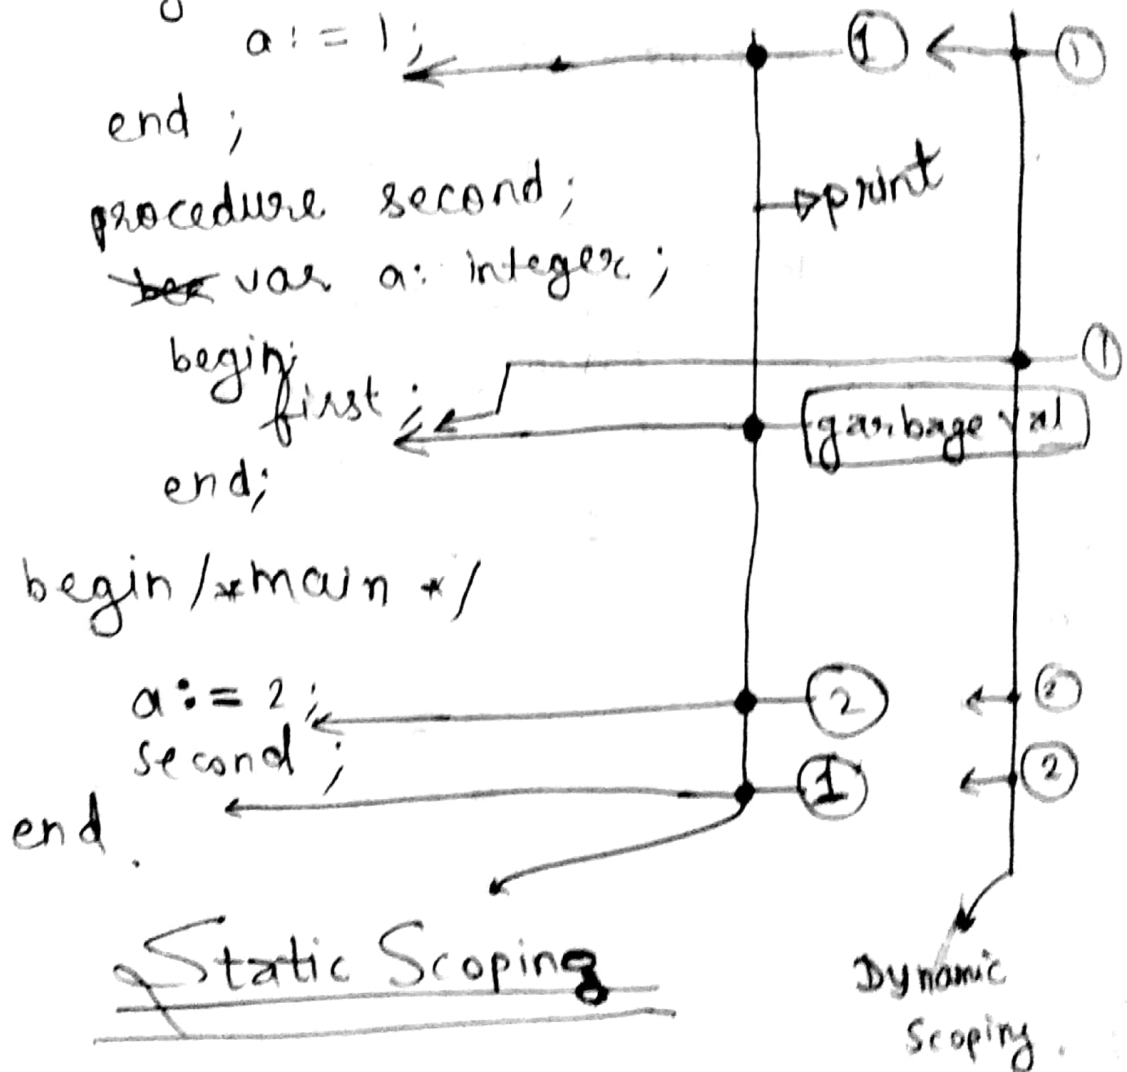 a := 1;
1
1
end ;
print
procedure second;
var a: integer ;
begin;
1
first ;
garbage val
end;
begin /*main */
a := 2;
2
2
second ;
1
2
end.
Static Scoping
Dynamic
Scoping.